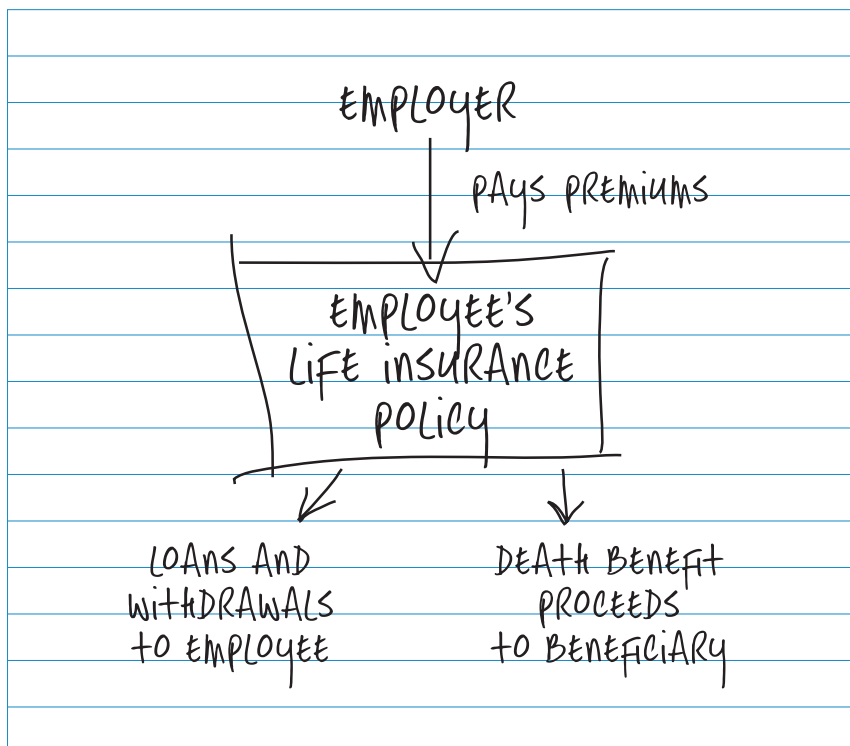 EMPLOYER
PAYS PREMIUMS
EMPLOYEE'S
LIFE INSURANCE
POLICY
LOANS AND
WITHDRAWALS
TO EMPLOYEE
DEATH BENEFIT
PROCEEDS
TO BENEFICIARY